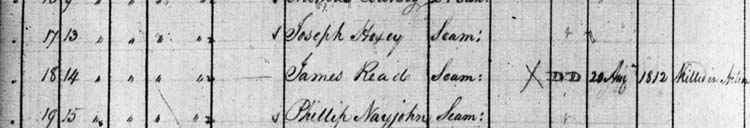 17 13 " " " " s Joseph Hexey Seam: " "
18 14 " " " " James Read Seam: X DD 20 Augt 1812 Killed in Action
19 15 " " " " s Phillip Nayjohn Seam: "